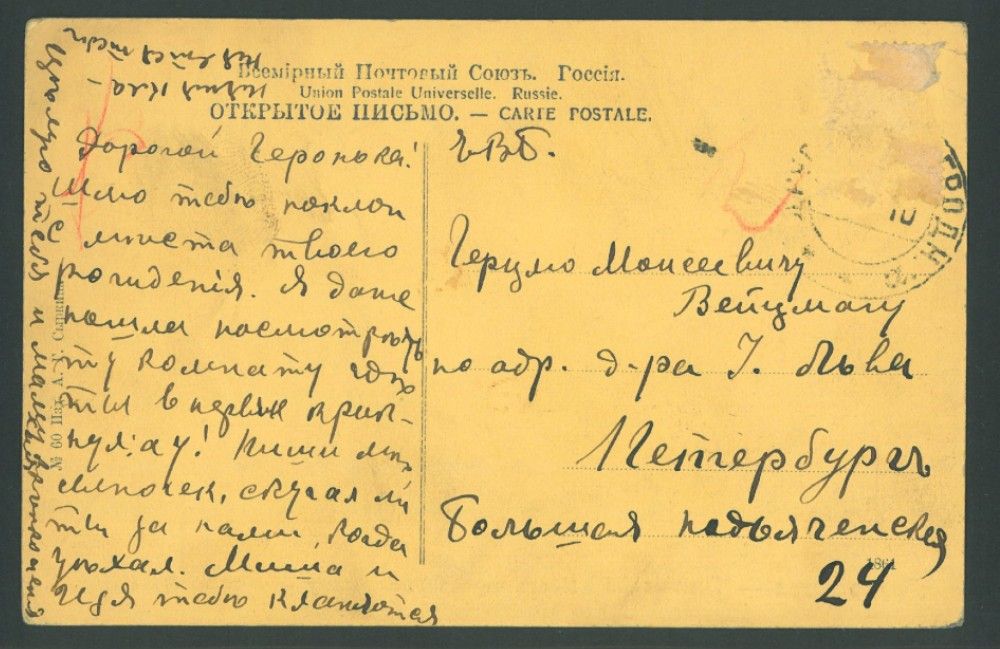 Всемірный Почтовый Союзъ. Россія.
Union Postale Universelle. Russie.
ОТКРЫТОЕ ПИСЬМО. — CARTE POSTALE.
Дорогой Геронька!
Шлю тебѣ поклон
с мѣста твоего
рожденія. Я даже
пошла посмотрѣть
ту комнату гдѣ
ты в первые крик-
нул: ау! Пиши мнѣ
сыночек, скучал ли
ты за нами, когда
уѣхал. Миша и
Идя тебѣ кланяются
Цѣлую тебя и
ЕВБ.
Герцлю Моисеевичу
Вейцману
по адр. д-ра І. Льва
Петербургъ
Большая подъяческая
24
№ 60 Изд. А. У.
1861
10